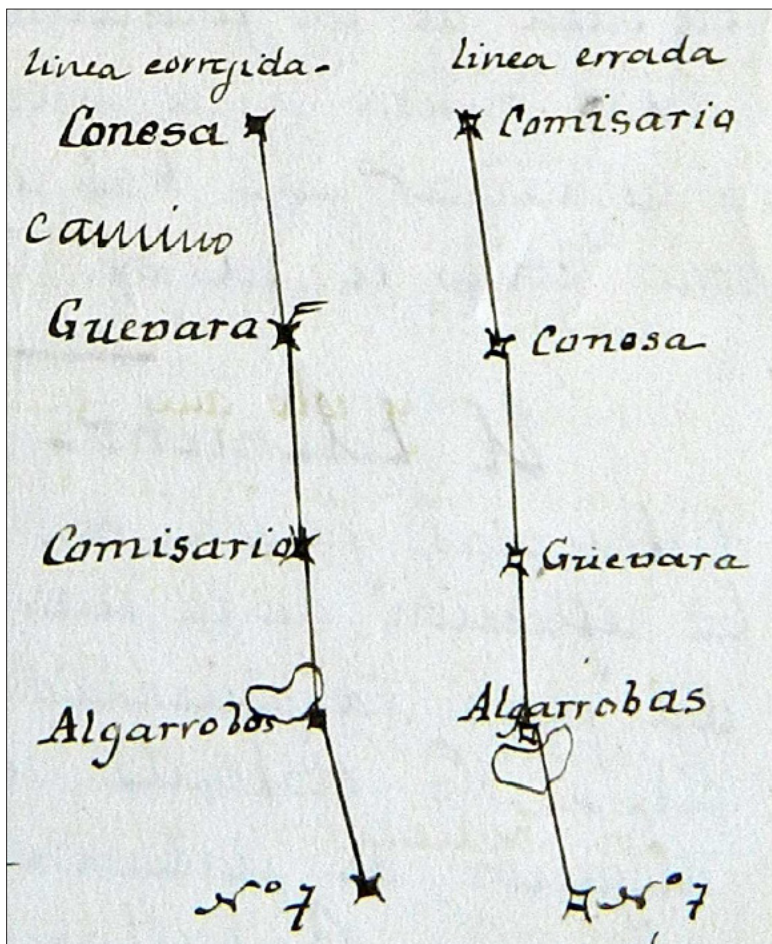 linea corregida.
Conesa
camino
Guevara
Comisario
Algarrobos
Nº 7
linea errada
Comisario
Conesa
Guevara
Algarrobas
Nº 7